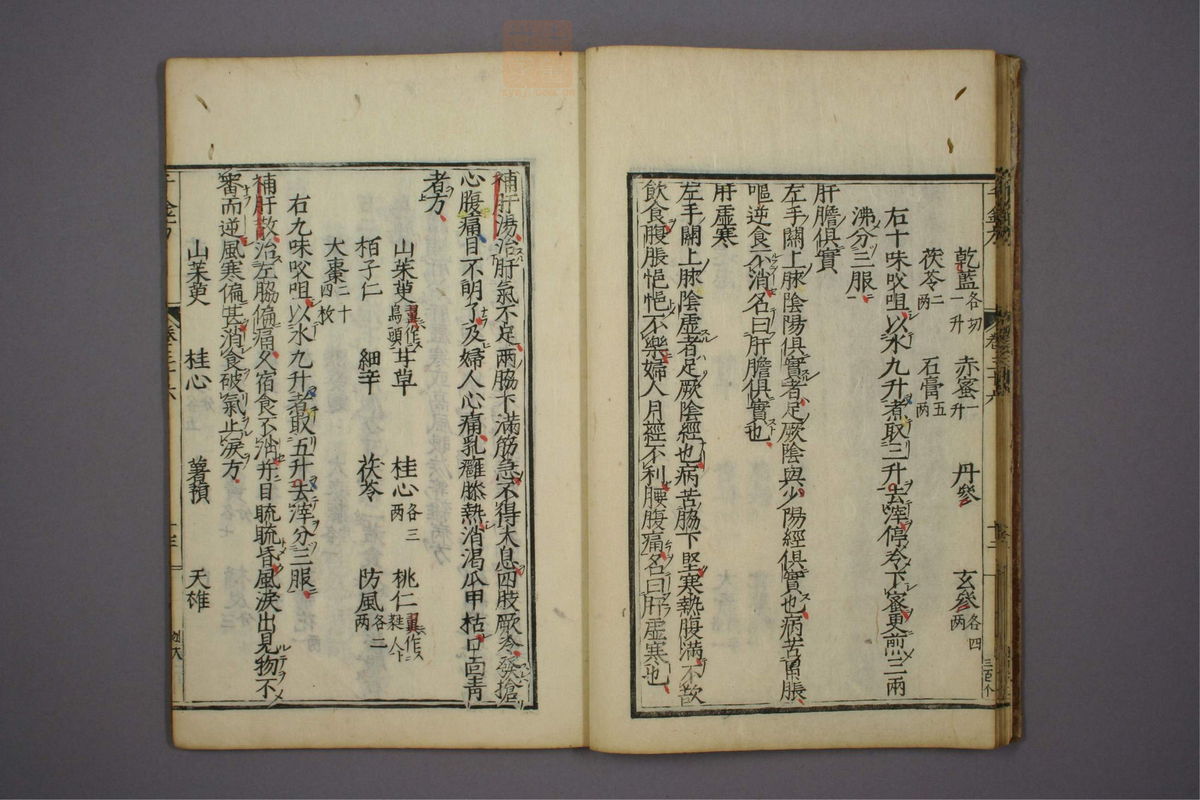 乾藍各切一升 赤蜜一升 丹參 玄參各四两
茯苓二两 石膏五两
右十味㕮咀以水九升煮取三升去滓停冷下蜜更煎三兩
沸分三服
肝膽俱實
左手關上脉陰陽俱實者足厥陰與少陽經俱實也病苦胃脹
嘔逆食不消名曰肝膽俱實也
肝虛寒
左手關上脉陰虛者足厥陰經也病苦脇下堅寒熱腹滿不欲
飲食腹脹悒悒不樂婦人月經不利腰腹痛名曰肝虛寒也
補肝湯治肝氣不足兩脇下滿筋急不得太息四肢厥冷發搶
心腹痛目不明了及婦人心痛乳癰膝熱消渴爪甲枯口靣青
者方
山茱萸翼作烏頭 甘草 桂心各三两 桃仁翼作
栢子仁 細辛 茯苓 防風各二两
大棗二十四枚
右九味㕮咀以水九升煮取五升去滓分三服
補肝散治左脇偏痛久宿食不消并目𥆨𥆨昏風淚出見物不
審而逆風寒偏甚消食破氣止淚方
山茱萸 桂心 薯蕷 天雄